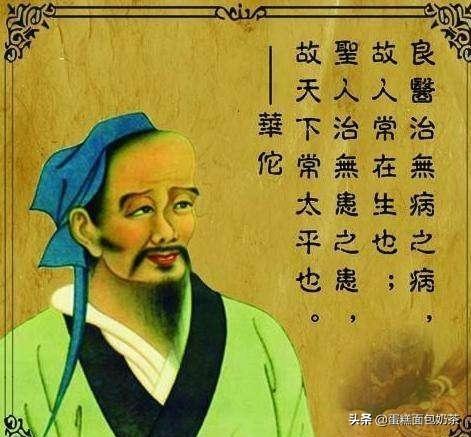 良醫治無病之病，
故人常在生也；
聖人治無患之患，
故天下常太平也。
——華佗
头条 @蛋糕面包奶茶